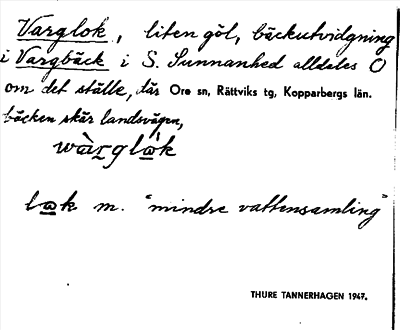 Varglok, liten göl, bäckutvidgning
i Vargbäck i S. Sunnanhed alldeles O
om det ställe, där Ore sn, Rättviks tg, Kopparbergs län.
bäcken skär landsvägen,
wàrglók
lok m. "mindre vattensamling"
THURE TANNERHAGEN 1947.